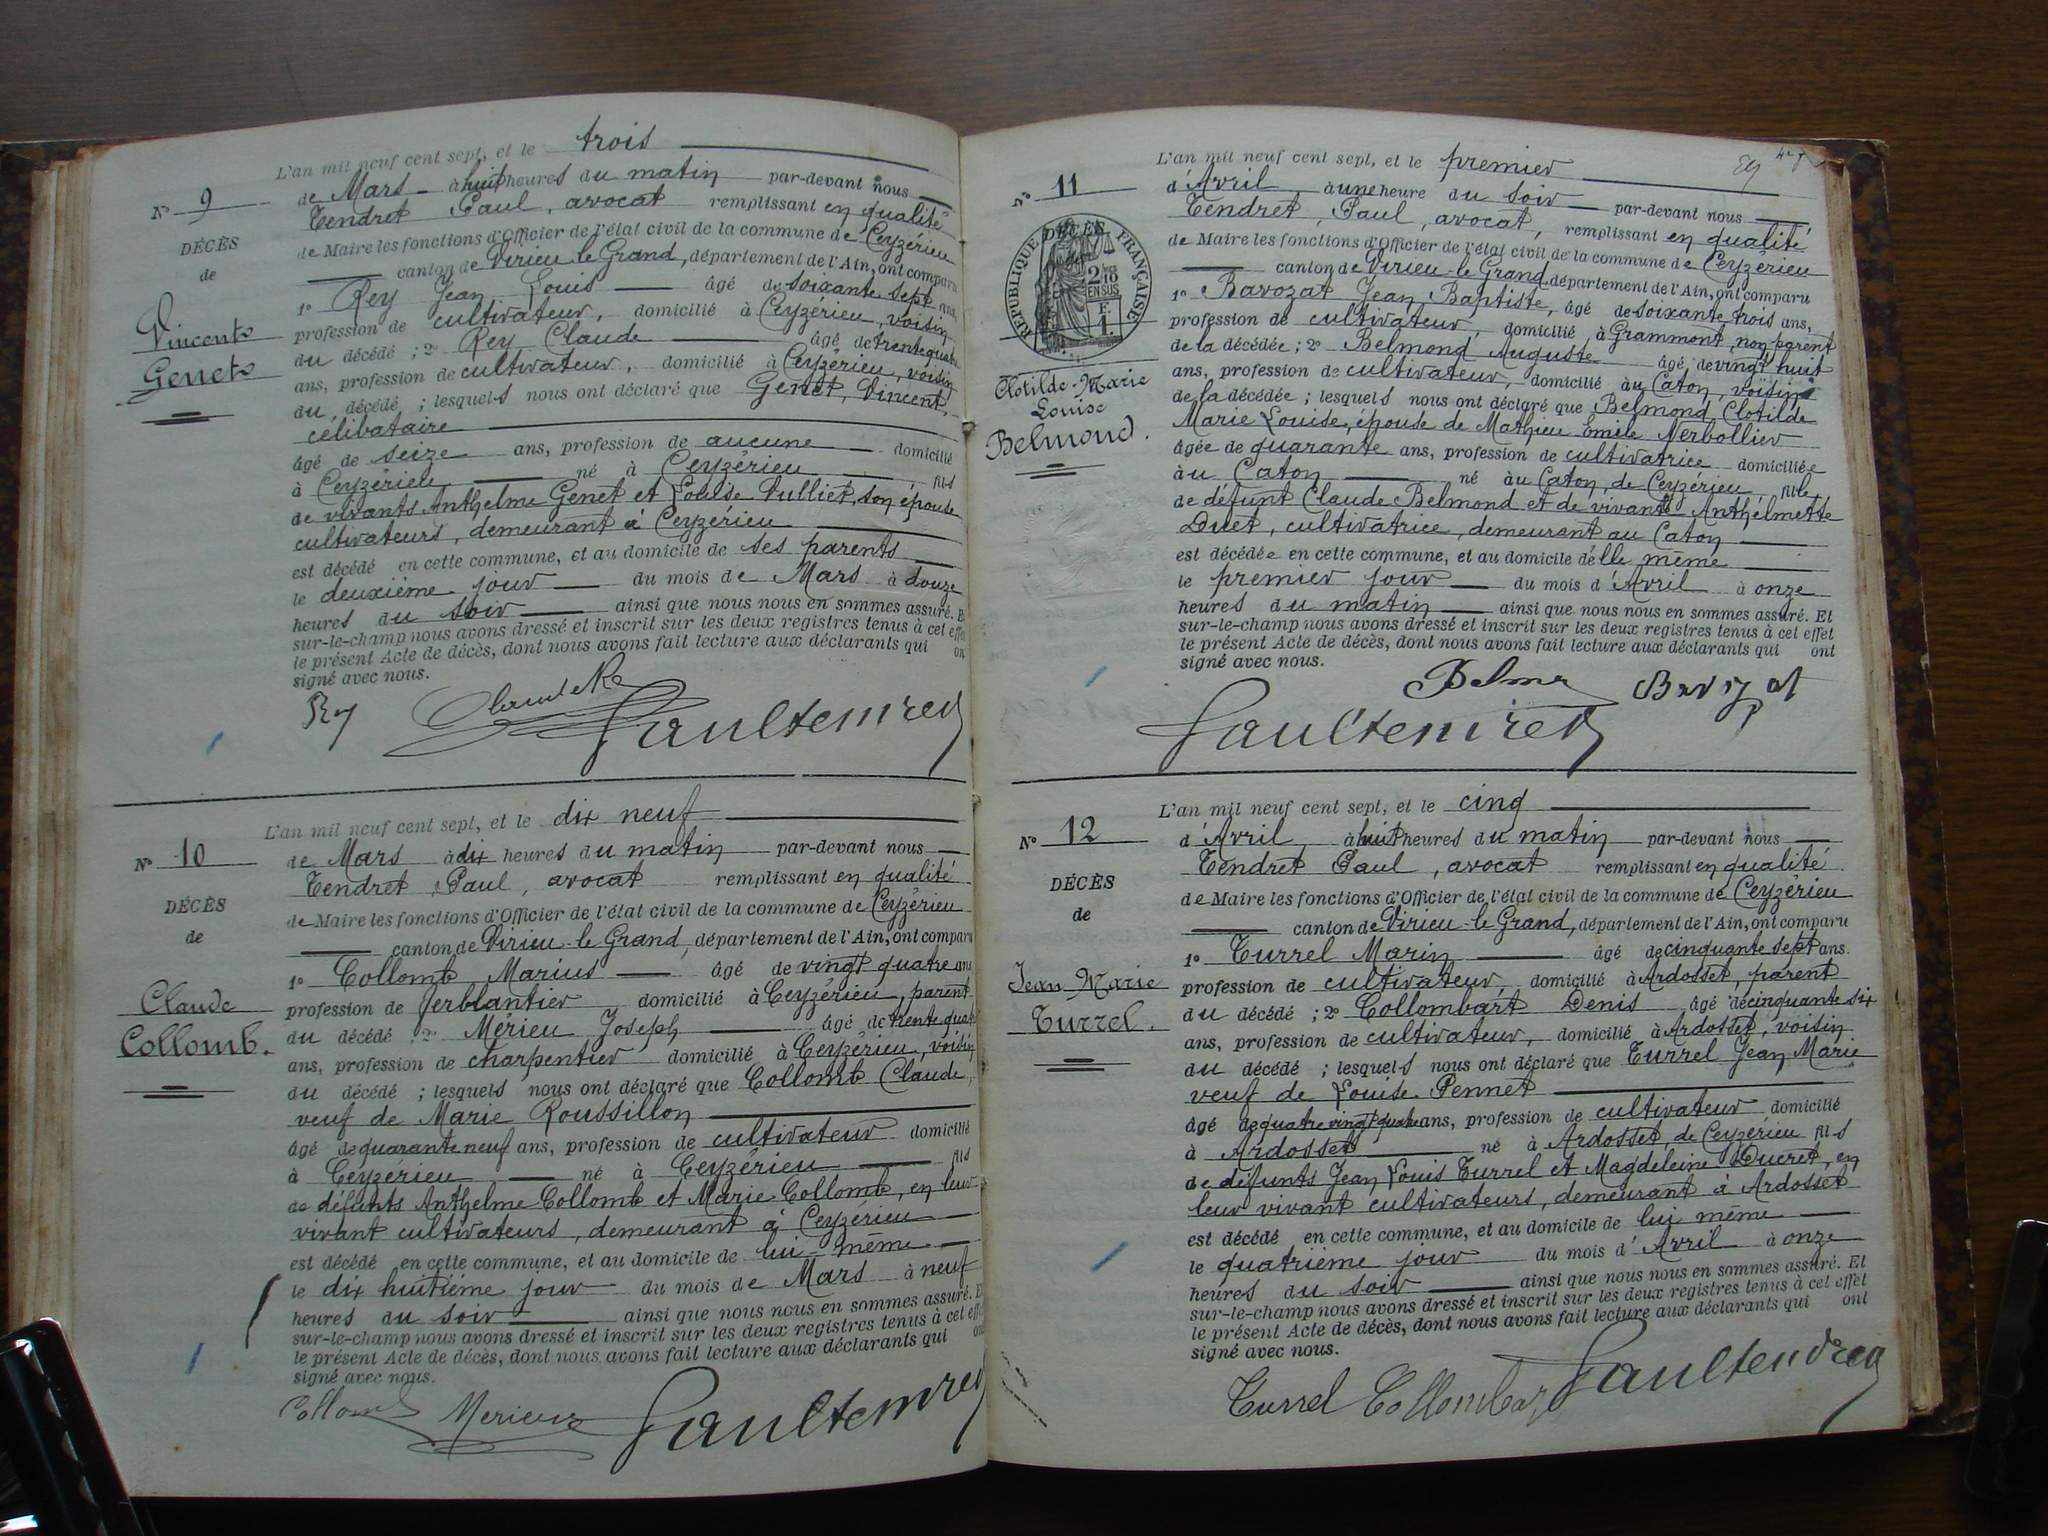 L'an mil neuf cent sept, et le trois
N° 9
de Mars à huit heures du matin par-devant nous
Tendret Paul, avocat remplissant en qualité
DÉCÈS
de
Vincent
Genet
de Maire les fonctions d'Officier de l'état civil de la commune de Ceyzérieu
canton de Virieu-le-Grand, département de l'Ain, ont comparu
1° Rey Jean Louis âgé de soixante sept ans,
profession de cultivateur, domicilié à Ceyzérieu, voisin
du décédé ; 2° Rey Claude âgé de trente quatre
ans, profession de cultivateur, domicilié à Ceyzérieu, voisin
du décédé ; lesquels nous ont déclaré que Genet, Vincent,
célibataire
âgé de seize ans, profession de aucune domicilié
à Ceyzérieu né à Ceyzérieu fils
de vivants Anthelme Genet et Louise Vulliet, son épouse
cultivateurs, demeurant à Ceyzérieu
est décédé en cette commune, et au domicile de ses parents
le deuxième jour du mois de Mars à douze
heures du soir ainsi que nous nous en sommes assuré. Et
sur-le-champ nous avons dressé et inscrit sur les deux registres tenus à cet effet
le présent Acte de décès, dont nous avons fait lecture aux déclarants qui ont
signé avec nous.
Rey Claude Rey Paul Tendret
L'an mil neuf cent sept, et le dix neuf
N° 10
de Mars à dix heures du matin par-devant nous
Tendret, Paul, avocat remplissant en qualité
DÉCÈS
de
Claude
Collomb.
de Maire les fonctions d'Officier de l'état civil de la commune de Ceyzérieu
canton de Virieu-le Grand, département de l'Ain, ont comparu
1° Collomb Marius âgé de vingt quatre ans
profession de ferblantier domicilié à Ceyzérieu, parent
du décédé ; 2° Mérieu Joseph âgé de trente quatre
ans, profession de charpentier domicilié à Ceyzérieu, voisin
du décédé ; lesquels nous ont déclaré que Collomb Claude,
veuf de Marie Roussillon
âgé de quarante neuf ans, profession de cultivateur domicilié
à Ceyzérieu né à Ceyzérieu fils
de défunts Anthelme Collomb et Marie Collomb, en leur
vivant cultivateurs, demeurant à Ceyzérieu
est décédé en cette commune, et au domicile de lui-même
le dix huitième jour du mois de Mars à neuf
heures du soir ainsi que nous nous en sommes assuré. Et
sur-le-champ nous avons dressé et inscrit sur les deux registres tenus à cet effet
le présent Acte de décès, dont nous avons fait lecture aux déclarants qui ont
signé avec nous.
Collomb Merieux Paul Tendret
L'an mil neuf cent sept, et le premier
N° 11
d'Avril à une heure du soir par-devant nous
Tendret, Paul, avocat, remplissant en qualité
DÉCÈS
RÉPUBLIQUE FRANÇAISE
2/10 EN SUS
F.
1.
Clotilde-Marie
Louise
Belmond.
de Maire les fonctions d'Officier de l'état civil de la commune de Ceyzérieu
canton de Virieu-le-Grand, département de l'Ain, ont comparu
1° Bavozat Jean Baptiste, âgé de soixante trois ans,
profession de cultivateur, domicilié à Grammont, non parent
de la décédée ; 2° Belmond Auguste âgé de vingt huit
ans, profession de cultivateur, domicilié au Caton, voisin
de la décédée ; lesquels nous ont déclaré que Belmond Clotilde
Marie Louise, épouse de Mathieu Emile Nerbollier
âgée de quarante ans, profession de cultivatrice domiciliée
au Caton né au Caton, de Ceyzérieu, fille
de défunt Claude Belmond et de vivante Anthelmette
Duet, cultivatrice, demeurant au Caton
est décédée en cette commune, et au domicile d'elle même
le premier jour du mois d'Avril à onze
heures du matin ainsi que nous nous en sommes assuré. Et
sur-le-champ nous avons dressé et inscrit sur les deux registres tenus à cet effet
le présent Acte de décès, dont nous avons fait lecture aux déclarants qui ont
signé avec nous.
Belmon Bavozat
Paul Tendret
L'an mil neuf cent sept, et le cinq
N° 12
d'Avril, à huit heures du matin par-devant nous
Tendret Paul, avocat remplissant en qualité
DÉCÈS
de
Jean-Marie
Turrel.
de Maire les fonctions d'Officier de l'état civil de la commune de Ceyzérieu
canton de Virieu-le-Grand, département de l'Ain, ont comparu
1° Turrel Marin âgé de cinquante sept ans.
profession de cultivateur, domicilié à Ardosset, parent
du décédé ; 2° Collombart Denis âgé de cinquante six
ans, profession de cultivateur, domicilié à Ardosset, voisin
du décédé ; lesquels nous ont déclaré que Turrel Jean Marie
veuf de Louise Pennet
âgé de quatre vingt quatre ans, profession de cultivateur domicilié
à Ardosset né à Ardosset, de Ceyzérieu fils
de défunts Jean Louis Turrel et Magdeleine Ducret, en
leur vivant cultivateurs, demeurant à Ardosset
est décédé en cette commune, et au domicile de lui même
le quatrième jour du mois d'Avril à onze
heures du soir ainsi que nous nous en sommes assuré. Et
sur-le-champ nous avons dressé et inscrit sur les deux registres tenus à cet effet
le présent Acte de décès, dont nous avons fait lecture aux déclarants qui ont
signé avec nous.
Turrel Collombar Paul Tendret